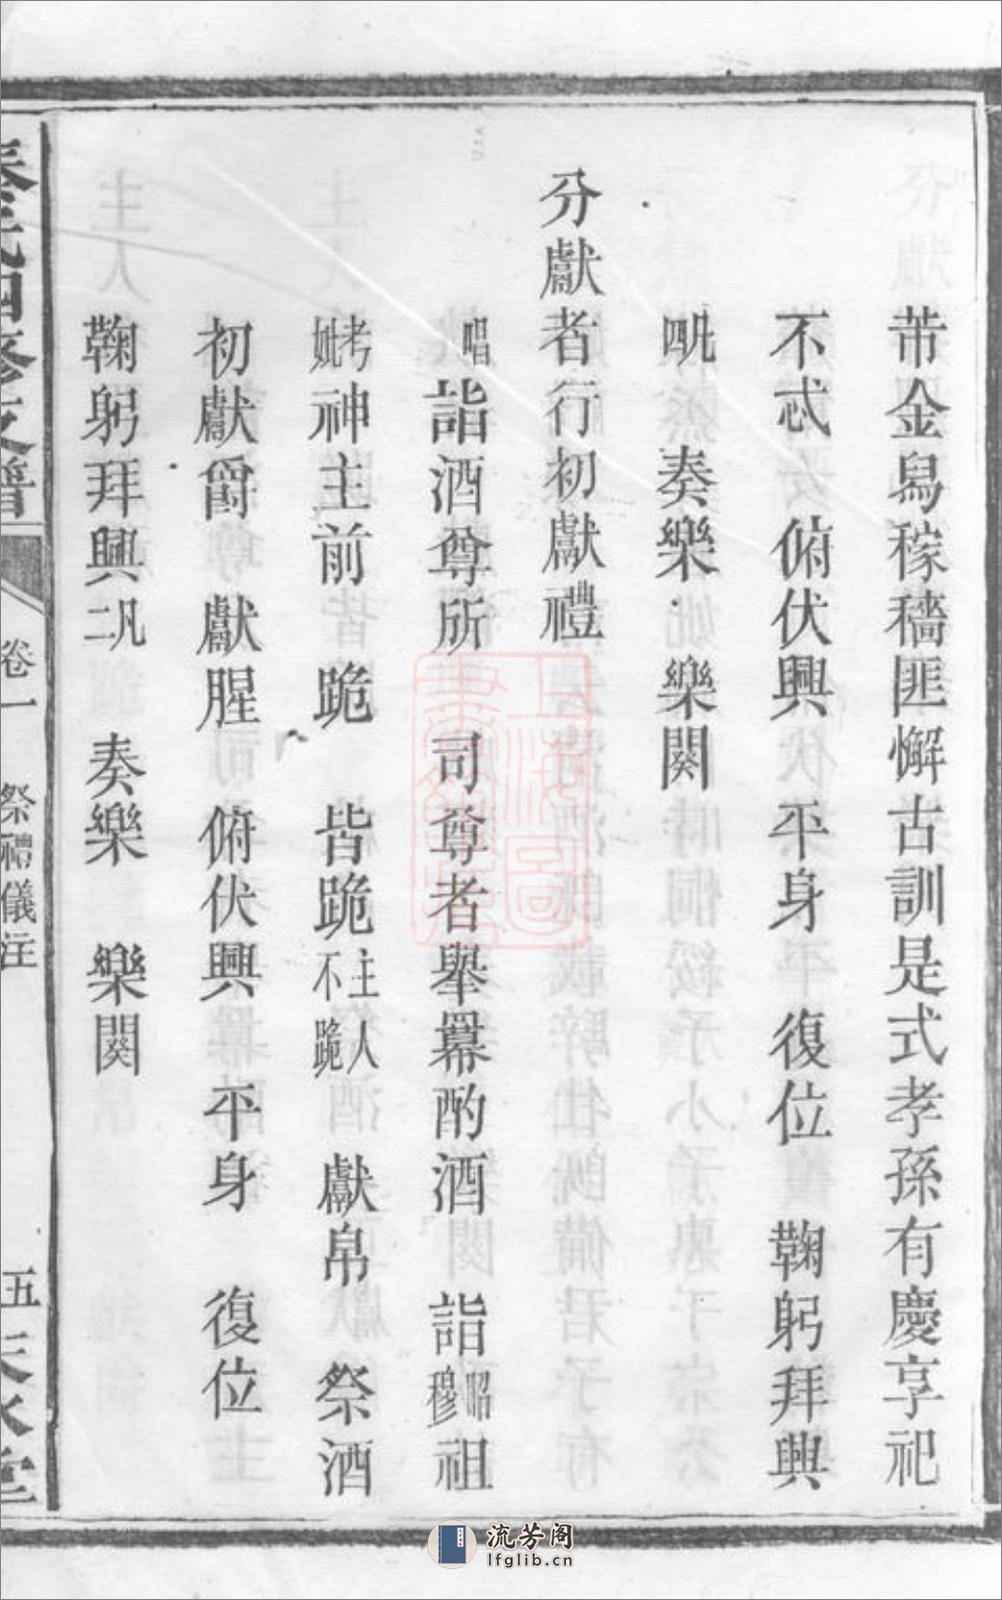 芾金舄稼穡匪懈古訓是式孝孫有慶享祀
不忒　俯伏興　平身　復位　鞠躬拜興
凡四　奏樂　樂闋
分獻者行初獻禮
唱　詣酒尊所　司尊者舉冪酌酒　詣昭穆祖
考妣神主前　跪　皆跪主人不跪　獻帛　祭酒
初獻爵　獻腥　俯伏興　平身　復位
鞠躬拜興凡二　奏樂　樂闋
秦氏四修支譜　卷一　祭禮儀注　五　天水堂
流芳阁
lfglib.cn